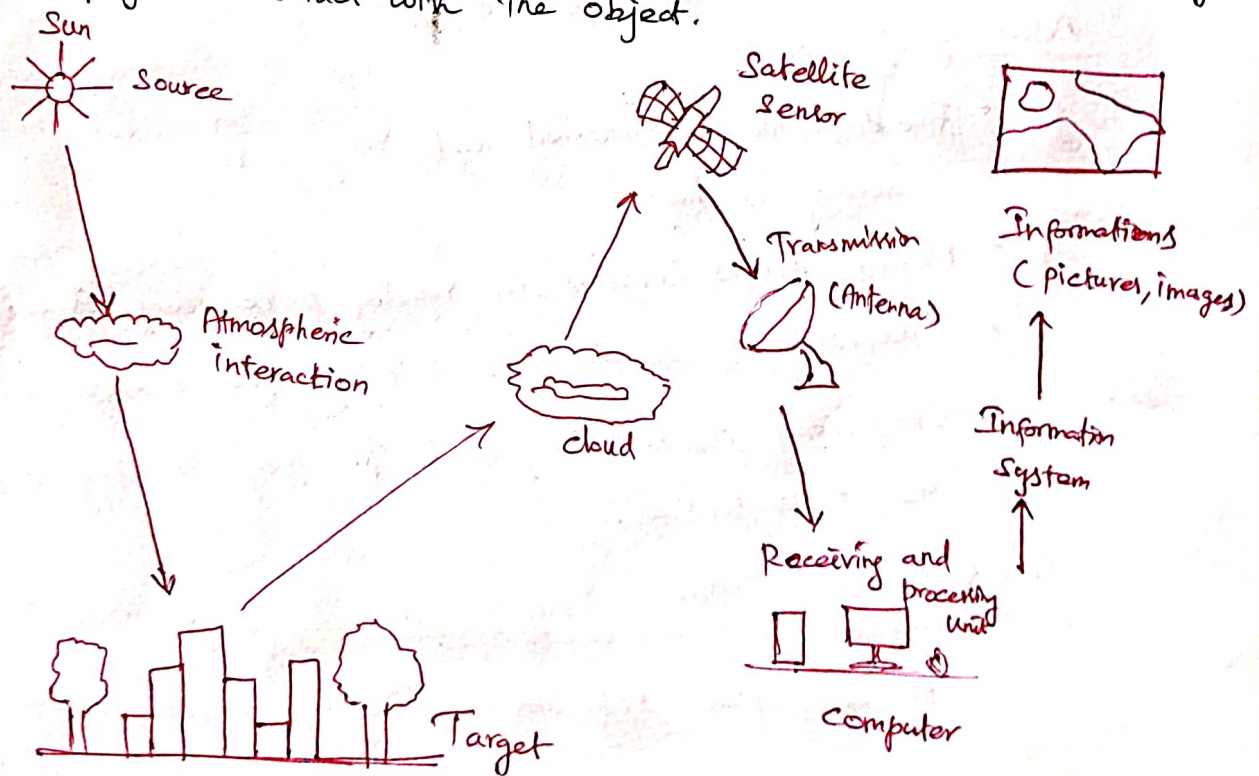 with the object.
Sun
Source
Atmospheric
interaction
Target
cloud
Satellite
sensor
Transmission
(Antenna)
Receiving and
processing
unit
Computer
Information
System
Informations
(pictures, images)